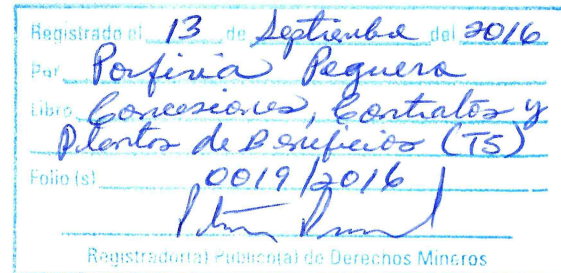 Registrado el 13 de Septiembre del 2016
Por Porfiria Peguero
Libro Concesiones, Contratos y
Plantas de Beneficios (TS)
Folio (s) 0019/2016
Registrador(a) Público(a) de Derechos Mineros